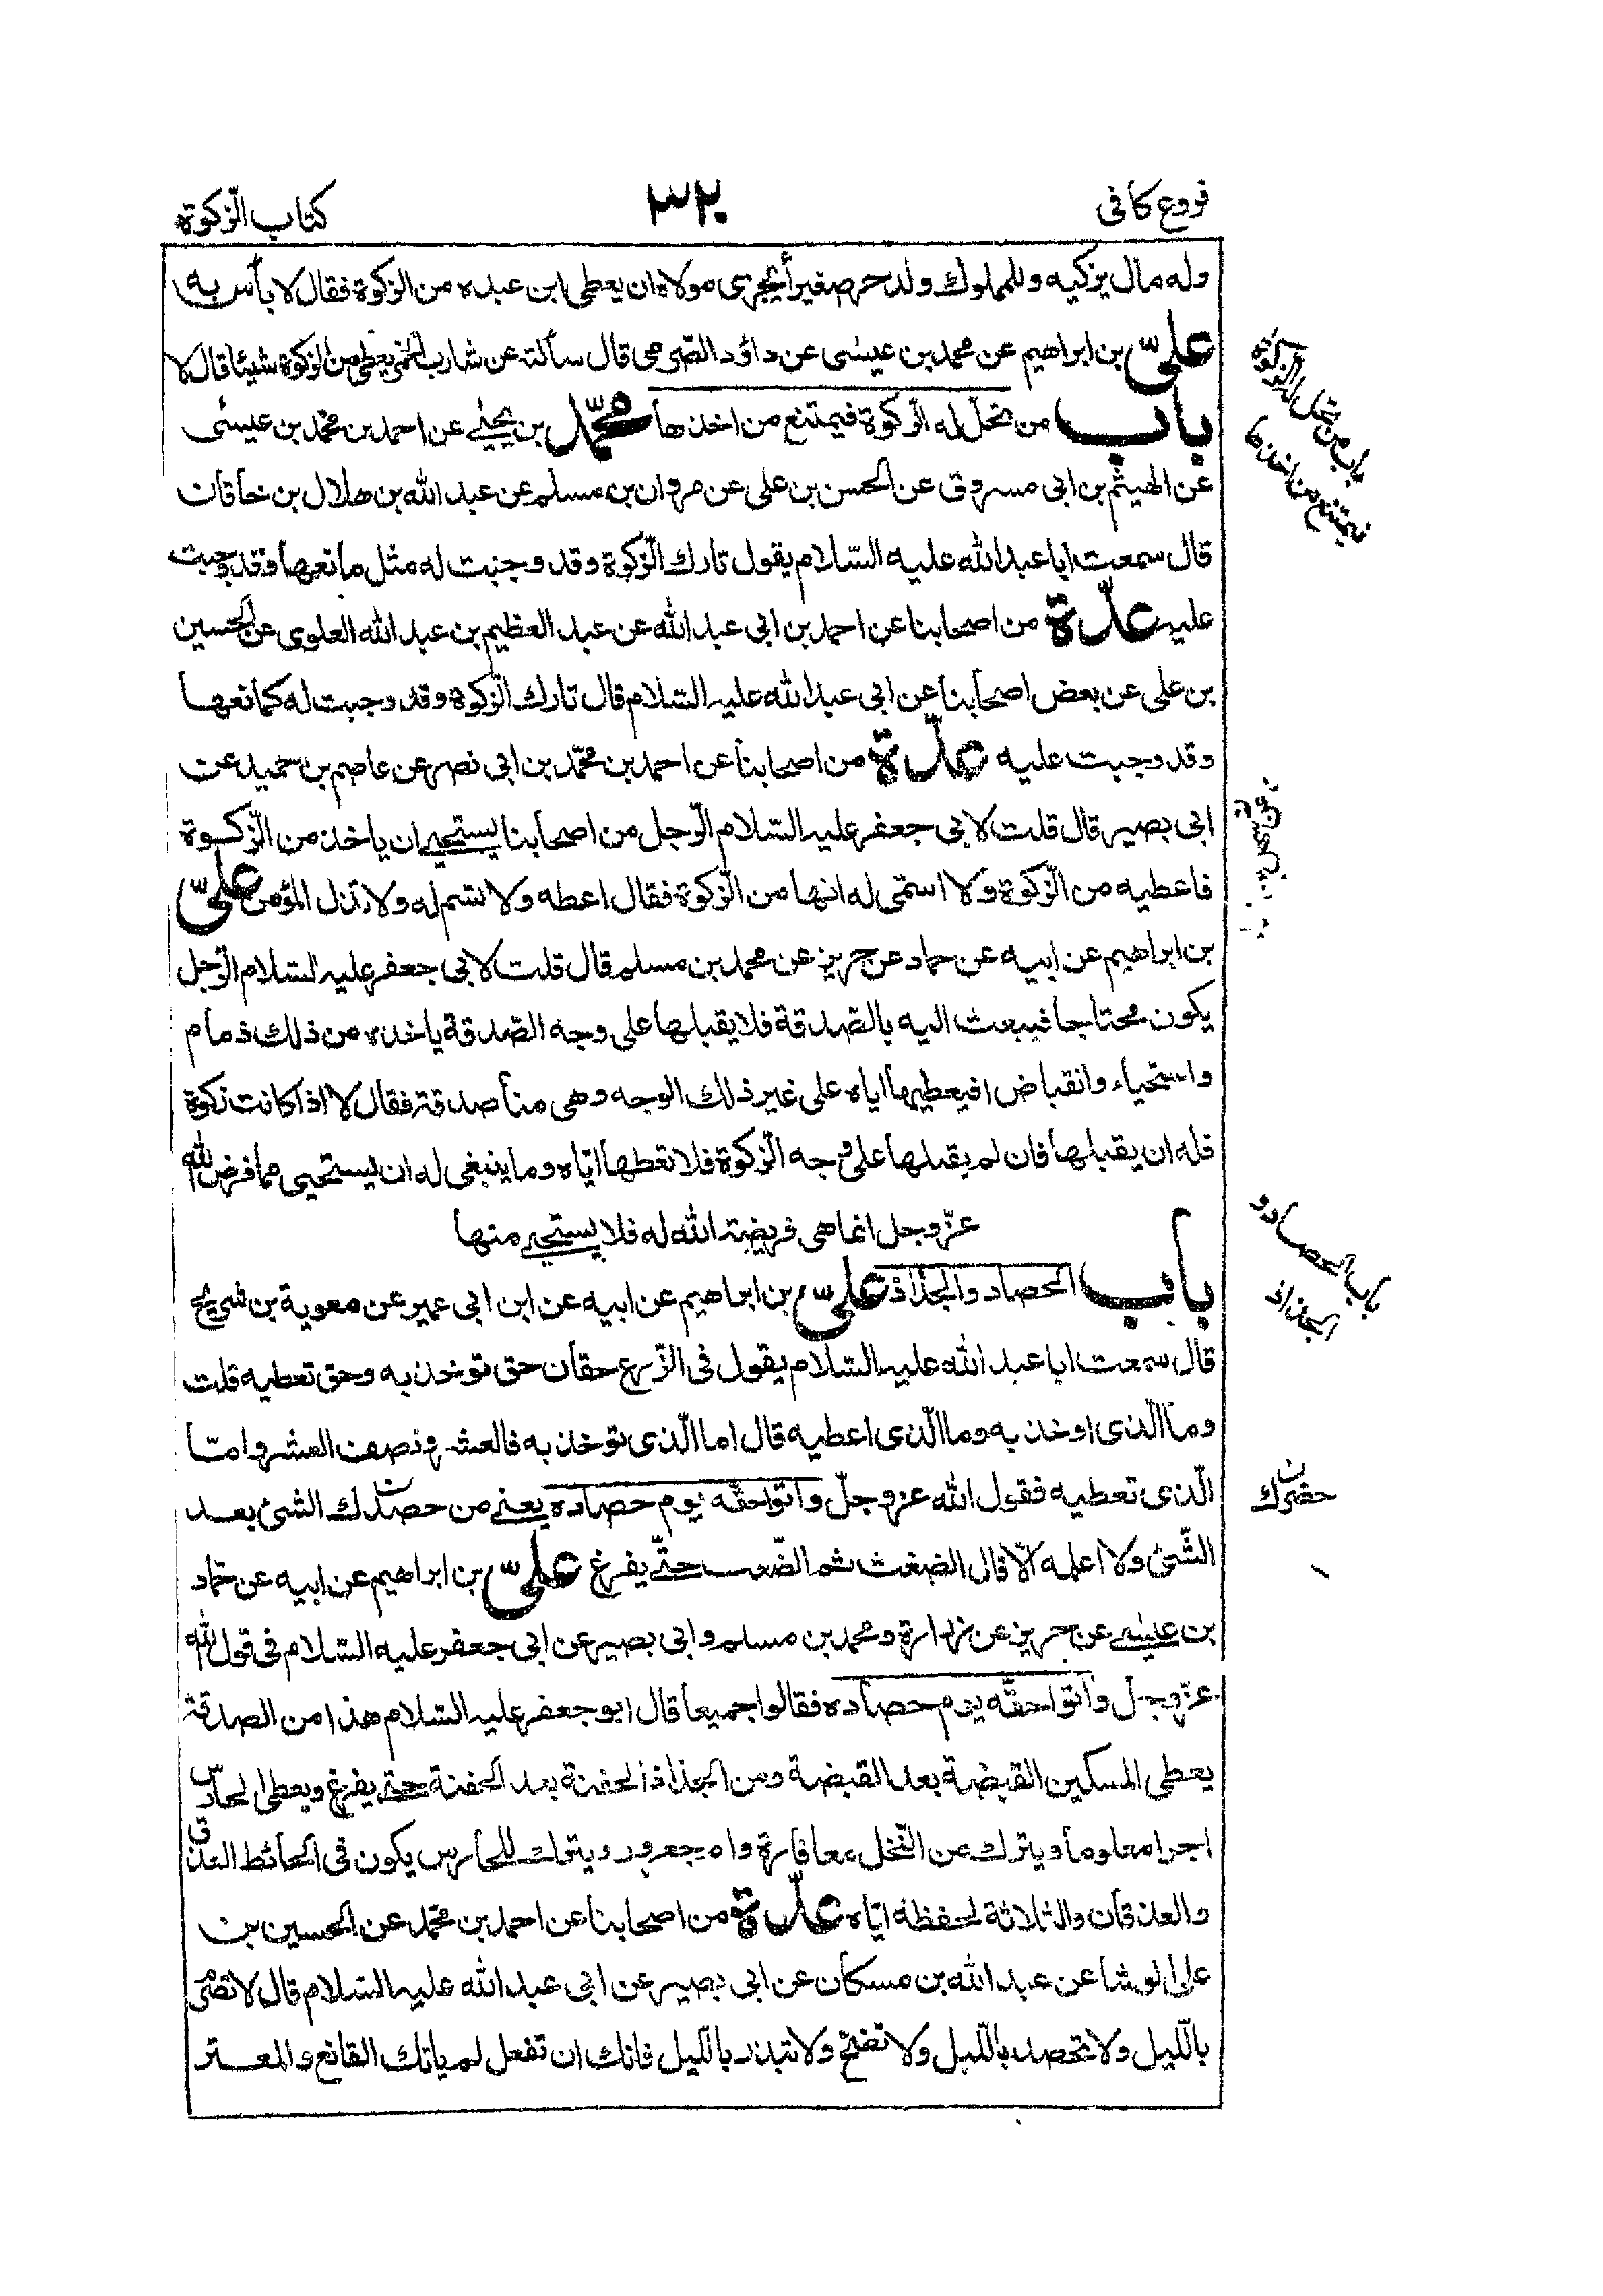 فروع كافى
٣٢٠
كتاب الزّكوة
وله مال يزكيه وللمملوك ولد حر صغير أيجزى مولاه ان يعطى ابن عبده من الزكوة فقال لا بأس به
علىّ بن ابراهيم عن محمد بن عيسى عن داؤد الصّرمى قال سألته عن شارب الخمر يعطى من الزكوة شيئا قال لا
باب من تحلّ له الزّكوة فيمتنع من اخذها محمّد بن يحيى عن احمد بن محمّد بن عيسى
عن الهيثم بن ابى مسروق عن الحسن بن على عن مروان بن مسلم عن عبد الله بن هلال بن خاقان
قال سمعت ابا عبد الله عليه السّلام يقول تارك الزّكوة وقد وجبت له مثل مانعها وقد وجبت
عليه عدّة من اصحابنا عن احمد بن ابى عبد الله عن عبد العظيم بن عبد الله العلوى عن الحسين
بن على عن بعض اصحابنا عن ابى عبد الله عليه السّلام قال تارك الزّكوة وقد وجبت له كمانعها
وقد وجبت عليه عدّة من اصحابنا عن احمد بن محمّد بن ابى نصر عن عاصم بن حميد عن
ابى بصير قال قلت لابى جعفر عليه السّلام الرّجل من اصحابنا يستحيى ان ياخذ من الزّكوة
فاعطيه من الزّكوة ولا اسمّى له انها من الزّكوة فقال اعطه ولا تسم له ولا تذل المؤمن علىّ
بن ابراهيم عن ابيه عن حماد عن حريز عن محمد بن مسلم قال قلت لابى جعفر عليه السّلام الرّجل
يكون محتاجا فيبعث اليه بالصّدقة فلا يقبلها على وجه الصّدقة ياخذه من ذلك ذمام
واستحياء وانقباض افيعطيها اياه على غير ذلك الوجه وهى منا صدقة فقال لا اذا كانت زكوة
فله ان يقبلها فان لم يقبلها على وجه الزّكوة فلا تعطها ايّاه وما ينبغى له ان يستحيى مما فرض الله
عزّ وجل انما هى فريضة الله له فلا يستحيى منها
باب الحصاد والجذاذ علىّ بن ابراهيم عن ابيه عن ابن ابى عمير عن معوية بن شريح
قال سمعت ابا عبد الله عليه السّلام يقول فى الزّرع حقان حق تؤخذ به وحق تعطيه قلت
وما الّذى اوخذ به وما الّذى اعطيه قال اما الّذى تؤخذ به فالعشر ونصف العشر وامّا
الّذى تعطيه فقول الله عز وجلّ واتوا حقّه يوم حصاده يعنى من حصدك الشئ بعد
الشّئ ولا اعلمه الّا قال الضغث ثم الضّغث حتّى يفرغ علىّ بن ابراهيم عن ابيه عن حمّاد
بن عيسى عن حريز عن زرارة ومحمد بن مسلم وابى بصير عن ابى جعفر عليه السّلام فى قول الله
عزّ وجل واتوا حقّه يوم حصاده فقالوا جميعا قال ابو جعفر عليه السّلام هذا من الصدقة
يعطى المسكين القبضة بعد القبضة ومن الجذاذ الحفنة بعد الحفنة حتى يفرغ ويعطى الحارس
اجرا معلوما ويترك من النّخل معافارة وام جعرور ويترك للحارس يكون فى الحائط العذق
والعذقان والثلاثة لحفظه ايّاه عدّة من اصحابنا عن احمد بن محمّد عن الحسين بن
على الوشا عن عبد الله بن مسكان عن ابى بصير عن ابى عبد الله عليه السّلام قال لا تصرم
بالّليل ولا تحصد بالّليل ولا تضحّ ولا تبذر بالّليل فانك ان تفعل لم ياتك القانع والمعتر
باب من تحل له الزكوة
فيمتنع من اخذها
باب الحصاد و
الجذاذ